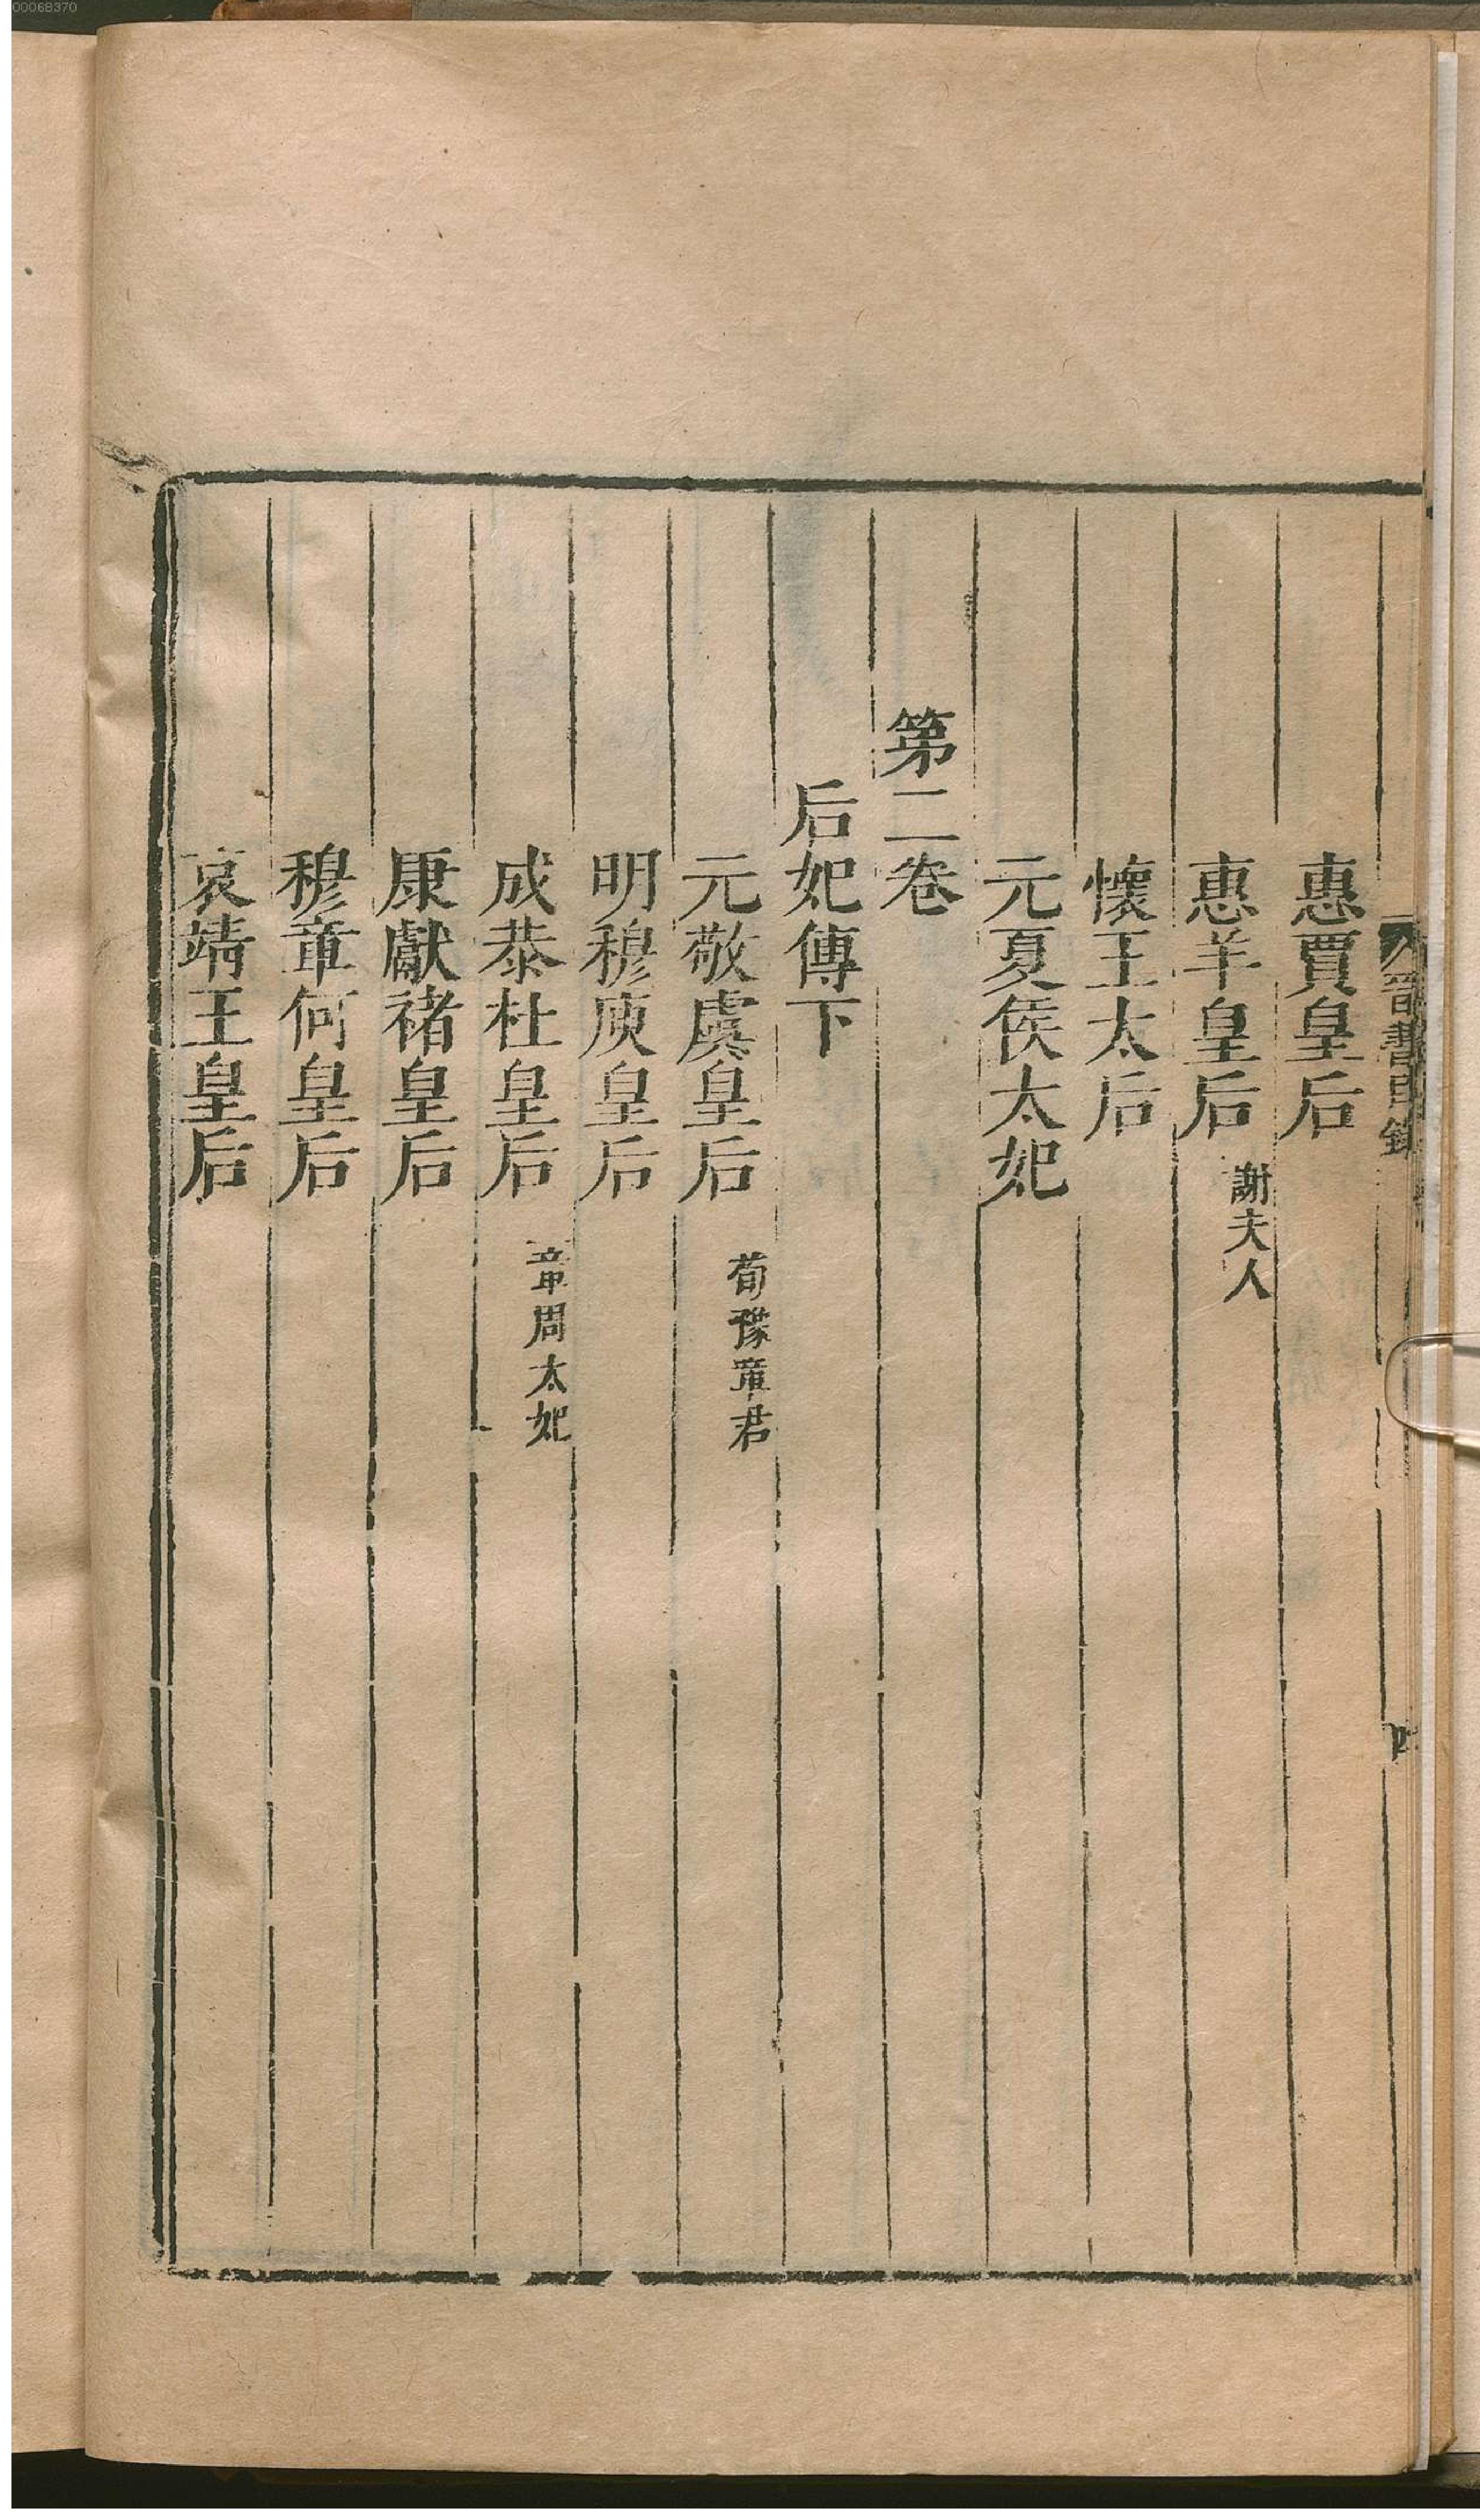 00068370
晉書目錄
惠賈皇后
惠羊皇后 謝夫人
懷王太后
元夏侯太妃
第二卷
后妃傳下
元敬虞皇后 荀豫章君
明穆庾皇后
成恭杜皇后 章周太妃
康獻褚皇后
穆章何皇后
哀靖王皇后